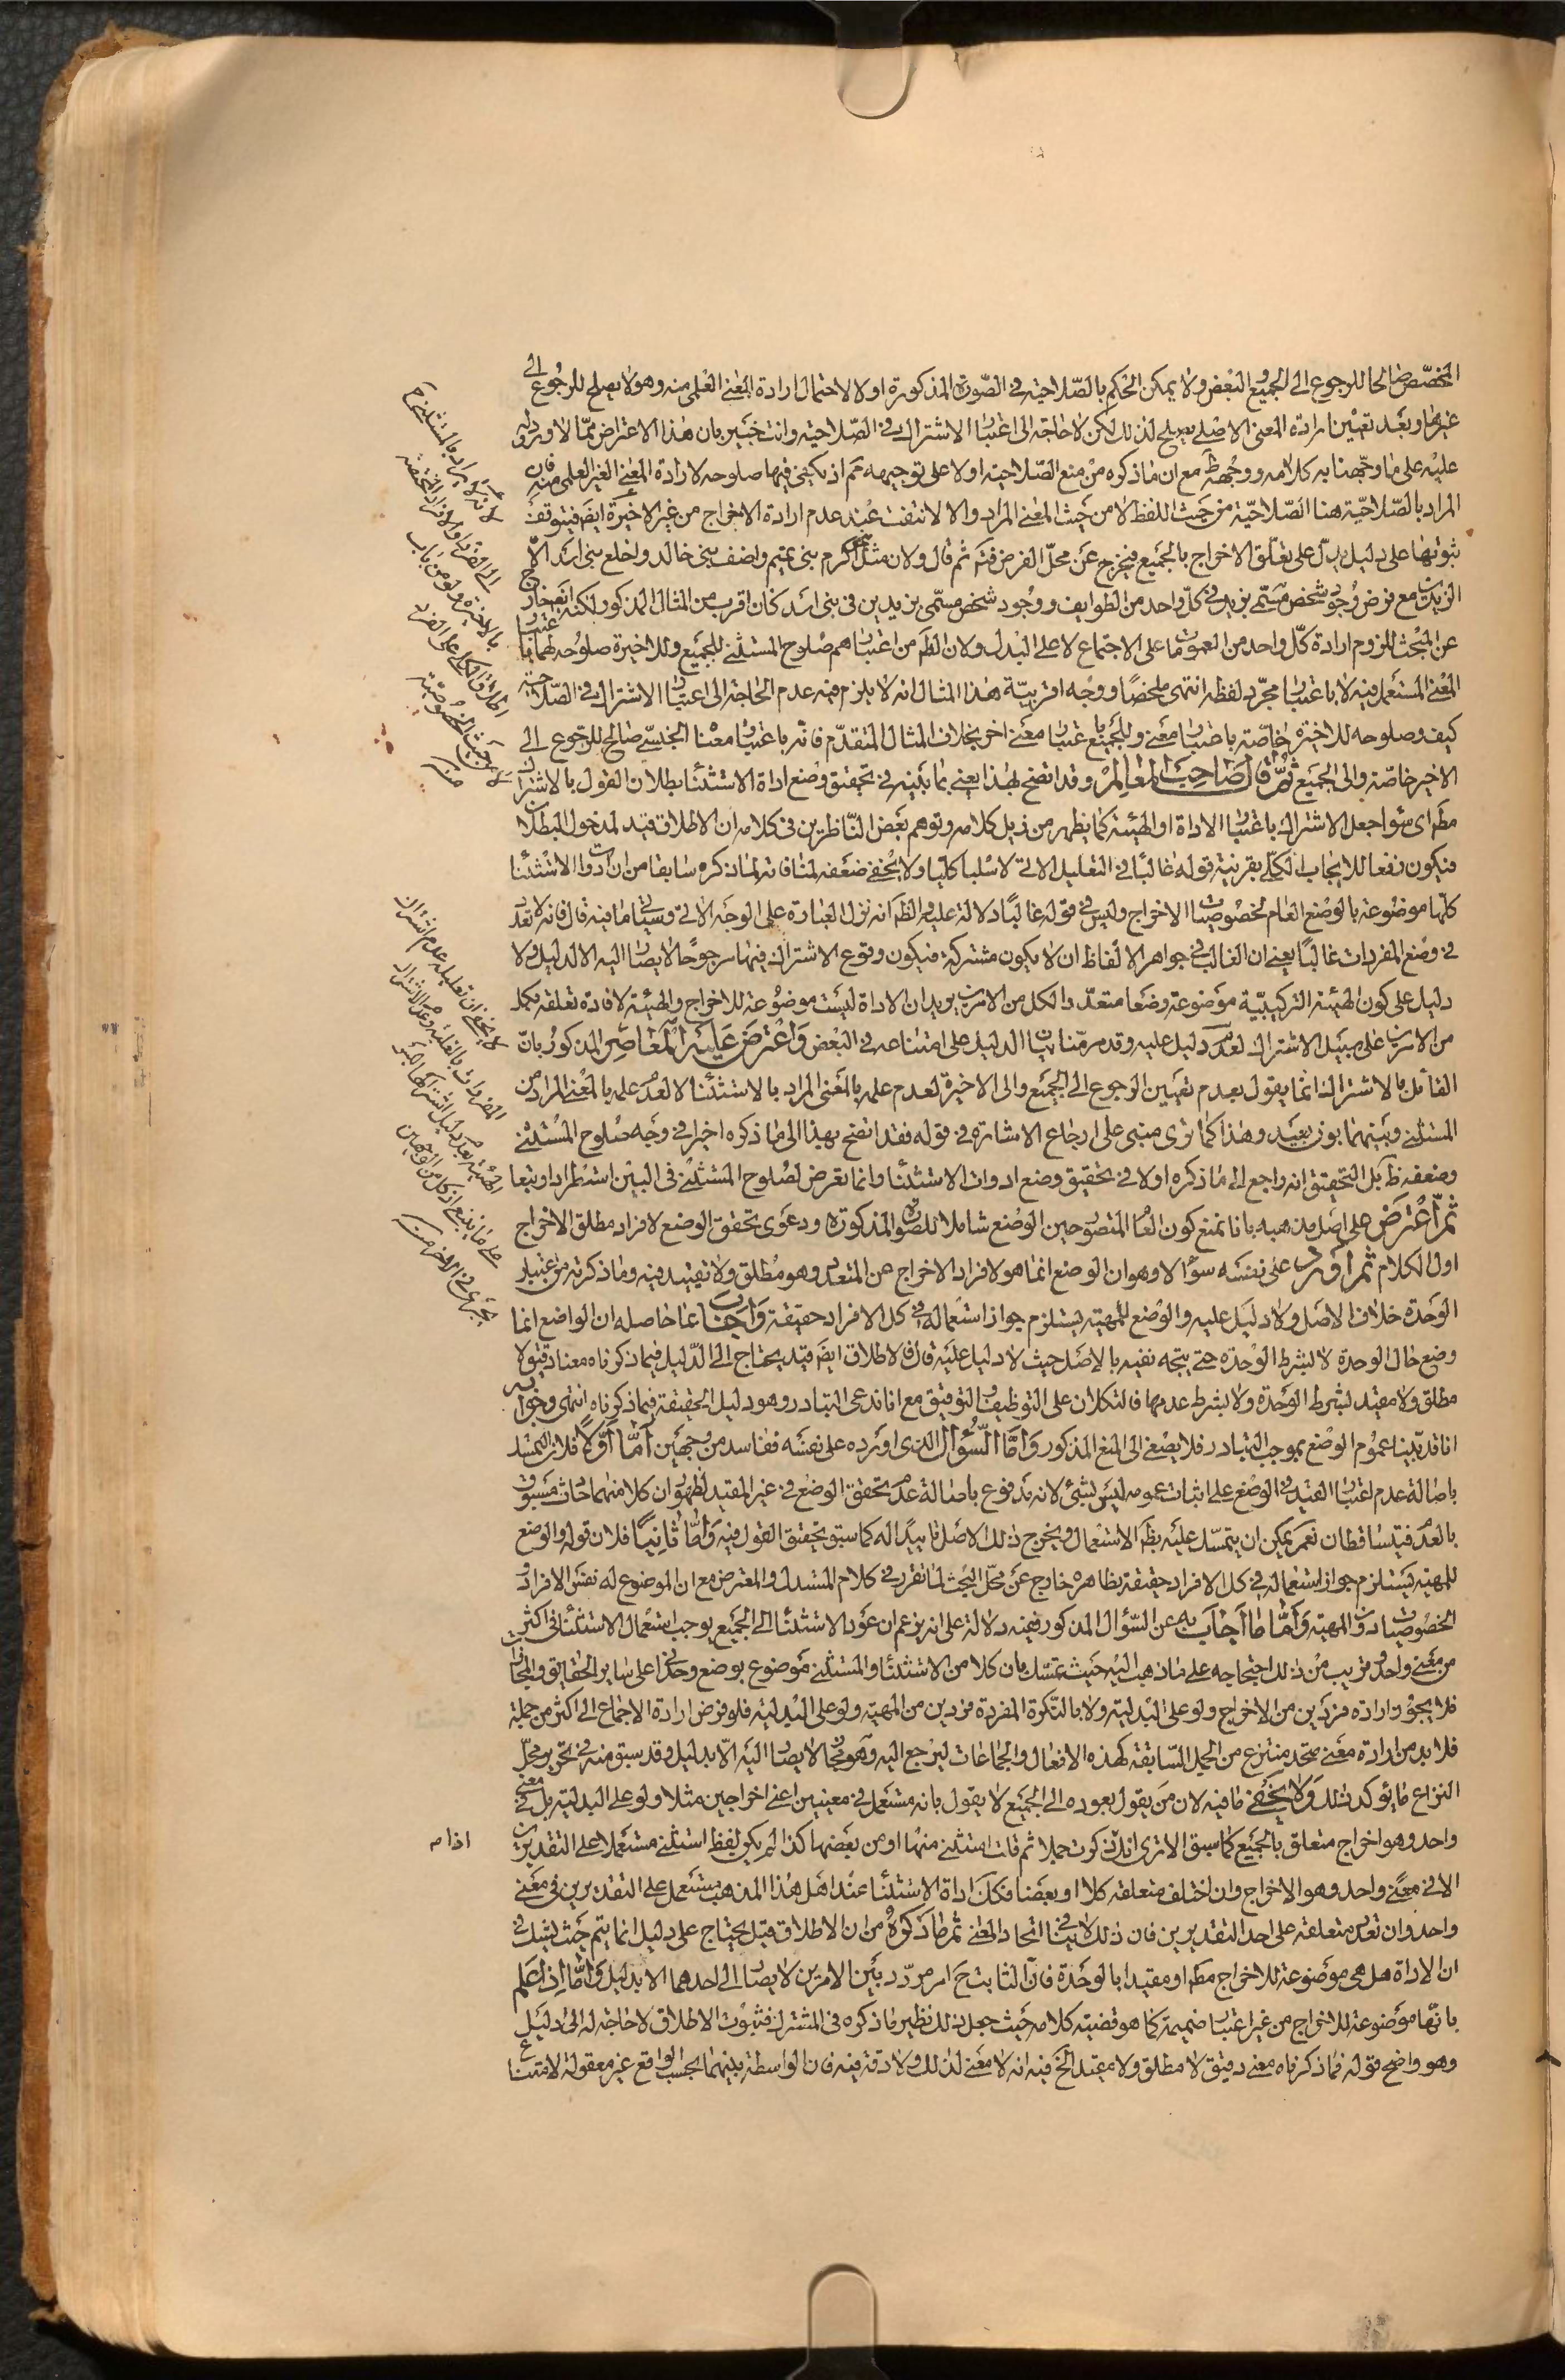 المخصّص صالحا للرجوع الى الجميع والبعض ولا يمكن الحكم بالصّلاحيّة فى الصّورة المذكورة اولا لاحتمال ارادة المعنى العلمى منه وهو لا يصلح للرجوع الى
غيرها وبعد تعيين ارادة المعنى الاصلى يصلح لذلك لكن لا حاجة الى اعتبار الاشتراك فى الصّلاحيّة وانت خبير بان هذا الاعتراض ممّا لا ورود له
عليه على ما وجّهنا به كلامه ووجهه ظ مع ان ما ذكره من منع الصّلاحية اولا على توجيهه مم اذ يكفى فيها صلوحه لارادة المعنى الغير العلمى منه فان
المراد بالصّلاحيّة هنا الصّلاحيّة من حيث اللفظ لا من حيث المعنى المراد والا لانتفت عند عدم ارادة الاخراج من غير الاخيرة ايضا فيتوقف
ثبوتها على دليل يدلّ على تعلّق الاخراج بالجميع فيخرج عن محلّ الفرض فتم ثم قال ولان مثل اكرم بنى تميم واضف بنى خالد واخلع بنى اسد الا
الزيدين مع فرض وجود شخص مسمّى بزيد فى كلّ واحد من الطوايف ووجود شخص مسمّى بزيدين فى بنى اسد كان اقرب من المثال المذكور ولكنه ايضا خارج
عن المبحث للزوم ارادة كلّ واحد من العمومات على الاجتماع لا على البدل ولان الظ من اعتبارهم صلوح المستثنى للجميع وللاخيرة صلوحه لهما باعتبار
المعنى المستعمل فيه لا باعتبار مجرّد لفظه انتهى ملخصًا ووجه اقربيّة هذا المثال انه لا يلزم فيه عدم الحاجة الى اعتبار الاشتراك فى الصّلاحية
كيف وصلوحه للاخيرة خاصّة باعتبار معنى وللجميع باعتبار معنى اخر بخلاف المثال المتقدّم فانّه باعتبار معنا الجنسىّ صالح للرّجوع الى
الاخير خاصّة والى الجميع ثُمَّ قالَ صَاحِبُ المَعالِم وقد اتضح بهذا يعنى بما بيّنه فى تحقيق وضع اداة الاستثنا بطلان القول بالاشتراك
مط اى سواء جعل الاشتراك باعتبار الاداة او الهيئة كما يظهر من ذيل كلامه وتوهم بعض النّاظرين فى كلامه ان الاطلاق قيد لمدخول البطلان
فيكون دفعا للايجاب الكلّى بقرينة قوله غالبًا فى التعليل الاتى لا سلبا كليا ولا يخفى ضعفه لمنافاته لما ذكره سابقا من ان ادوات الاستثنا
كلّها موضوعة بالوضع العام لخصوصيّات الاخراج وليس فى قوله غالبًا دلالة عليه والظ انه نزل العبارة على الوجه الاتى وسياتى ما فيه قال فانه لا تعدّد
فى وضع المفردات غالبًا يعنى ان الغالب فى جواهر الالفاظ ان لا يكون مشتركة فيكون وقوع الاشتراك فيها مرجوحًا لا يصار اليه الا لدليل ولا
دليل على كون الهيئة التركيبيّة موضوعة وضعا متعدّدا لكل من الامرين يريد ان الاداة ليست موضوعة للاخراج والهيئة لافادة تعلقه بكل
من الامرين على سبيل الاشتراك لعدم دليل عليه وقد مرّ منّا بيان الدليل على امتناعه فى البعض وَاعْتَرَضَ عَلَيْهِ المُعاصِر المذكور بانّ
القائل بالاشتراك انما يقول بعدم تعيين الرجوع الى الجميع والى الاخيرة لعدم علمه بالمعنى المراد بالاستثنا لا لعدم علمه بالمعنى المراد من
المستثنى وبينهما بون بعيد وهذا كما ترى مبنى على ارجاع الاشارة فى قوله فقد اتضح بهذا الى ما ذكره اخيرا فى وجه صلوح المستثنى
وضعفه ظ بل التحقيق انه راجع الى ما ذكره اولا فى تحقيق وضع ادوات الاستثنا وانما تعرض لصلوح المستثنى فى البين استطرادا وتبعا
ثُمَّ اعْتَرَضَ على اصل مذهبه بانا نمنع كون العام المتصوّر حين الوضع شاملا للصورة المذكورة ودعوى تحقق الوضع لافراد مطلق الاخراج
اول الكلام ثُمَّ اَورَدَ على نفسه سؤالا وهو ان الوضع انما هو لافراد الاخراج عن المتعدد وهو مطلق ولا تقييد فيه وما ذكرته من اعتبار
الوحدة خلاف الاصل ولا دليل عليه والوضع للمهيّة يستلزم جواز استعماله فى كل الافراد حقيقة وَاَجابَ عنا حاصله ان الواضع انما
وضع حال الوحدة لا بشرط الوحدة حتى يتجه نفيه بالاصل حيث لا دليل عليه قال فالاطلاق ايضا قيد يحتاج الى الدّليل فيما ذكرناه معنا دقيق لا
مطلق ولا مقيد بشرط الوحدة ولا بشرط عدمها فالتكلان على التوظيف والتوقيف مع انا ندعى التبادر وهو دليل الحقيقة فيما ذكرناه انتهى وجوابه
انا قد بيّنا عموم الوضع بموجب التبادر فلا يصغى الى المنع المذكور وَاَمّا السُّؤال الذى اورده على نفسه ففاسد من وجهين اَمّا اَوَّلًا فلان التمسّك
باصالة عدم اعتبار القيد فى الوضع على اثبات عمومه ليس بشئ لانه مدفوع باصالة عدم تحقق الوضع فى غير المقيد لظهور ان كلا منهما حادث مسبوق
بالعدم فيتساقطان نعم يمكن ان يتمسّك عليه بظ الاستعمال ويخرج ذلك الاصل تاييدًا له كما سبق تحقيق القول فيه وَاَمّا ثانِيًا فلان قوله والوضع
للمهيّة يستلزم جواز استعماله فى كل الافراد حقيقة بظاهره خارج عن محلّ البحث لما تقرر فى كلام المستدل والمعترض مع ان الموضوع له نفس الافراد و
الخصوصيات دون المهيّة وَاَمّا ما اَجابَ بِهِ عن السّؤال المذكور ففيه دلالة على انه يزعم ان عود الاستثنا الى الجميع يوجب استعمال الاستثنا فى اكثر
من معنى واحد وقريب من ذلك احتجاجه على ما ذهب اليه حيث تمسّك بان كلا من الاستثنا والمستثنى موضوع بوضع وحدانى على ساير الحقايق والمجازات
فلا يجوز ارادة فردين من الاخراج ولو على البدلية ولا بالنّكرة المفردة فردين من المهيّة ولو على البدليّة فلو فرض ارادة الاجماع الى اكثر من جملة
فلا بد من ارادة معنى متحد منتزع من الجمل السّابقة كهذه الافعال والجماعات ليرجع اليه وهو مجاز لا يصار اليه الّا بدليل وقد سبق منه فى تحرير محلّ
النزاع ما يؤكد ذلك وَلا يَخْفى ما فيه لان من يقول بعوده الى الجميع لا يقول بانه مستعمل فى معنيين اعنى اخراجين مثلا ولو على البدلية بل فى معنى
واحد وهو اخراج متعلق بالجميع كما سبق الا ترى انك لو ذكرت جملا ثم قلت استثنى منها او من بعضها كذا لم يكن لفظ استثنى مستعملا على التقديرين
الا فى معنى واحد وهو الاخراج وان اختلف متعلقه كلا او بعضا فكل اداة الاستثنا عند اهل هذا المذهب مستعمل على التقديرين فى معنى
واحد وان تعدد متعلقه على احد التقديرين فان ذلك لا ينافى اتحاد المعنى ثم ما ذكره من ان الاطلاق قيد يحتاج على دليل انما يتم حيث يشك فى
ان الاداة هل هى موضوعة للاخراج مط او مقيدا بالوحدة فان الثابت ح امر مردّد بين الامرين لا يصار الى احدهما الا بدليل وَاَمّا اِذا عُلِم
بانّها موضوعة للاخراج من غير اعتبار ضميمة كما هو قضية كلامه حيث جعل ذلك نظير ما ذكره فى المشترك فثبوت الاطلاق لا حاجة له الى دليل
وهو واضح قوله فما ذكرناه معنى دقيق لا مطلق ولا مقيد الخ فيه انه لا معنى لذلك ولا دقة فيه فان الواسطة بينهما بحسب الواقع غير معقولة لامتناع
اذا مـ